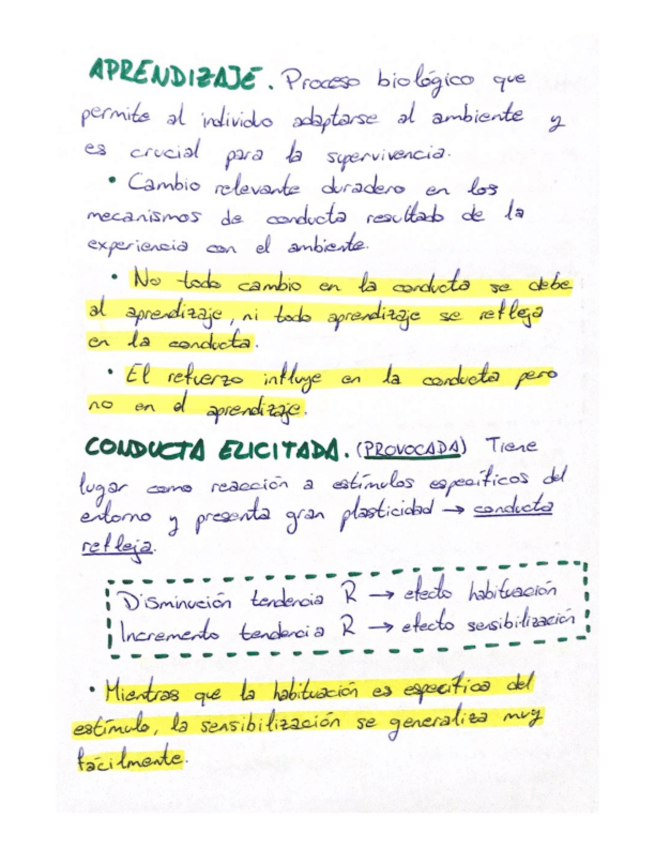 APRENDIZAJE. Proceso biológico que
permite al individuo adaptarse al ambiente y
es crucial para la supervivencia.
• Cambio relevante duradero en los
mecanismos de conducta resultado de la
experiencia con el ambiente.
• No todo cambio en la conducta se debe
al aprendizaje, ni todo aprendizaje se refleja
en la conducta.
• El refuerzo influye en la conducta pero
no en el aprendizaje.
CONDUCTA ELICITADA. (PROVOCADA) Tiene
lugar como reacción a estímulos específicos del
entorno y presenta gran plasticidad → conducta
refleja.
Disminución tendencia R → efecto habituación
Incremento tendencia R → efecto sensibilización
• Mientras que la habituación es específica del
estímulo, la sensibilización se generaliza muy
fácilmente.